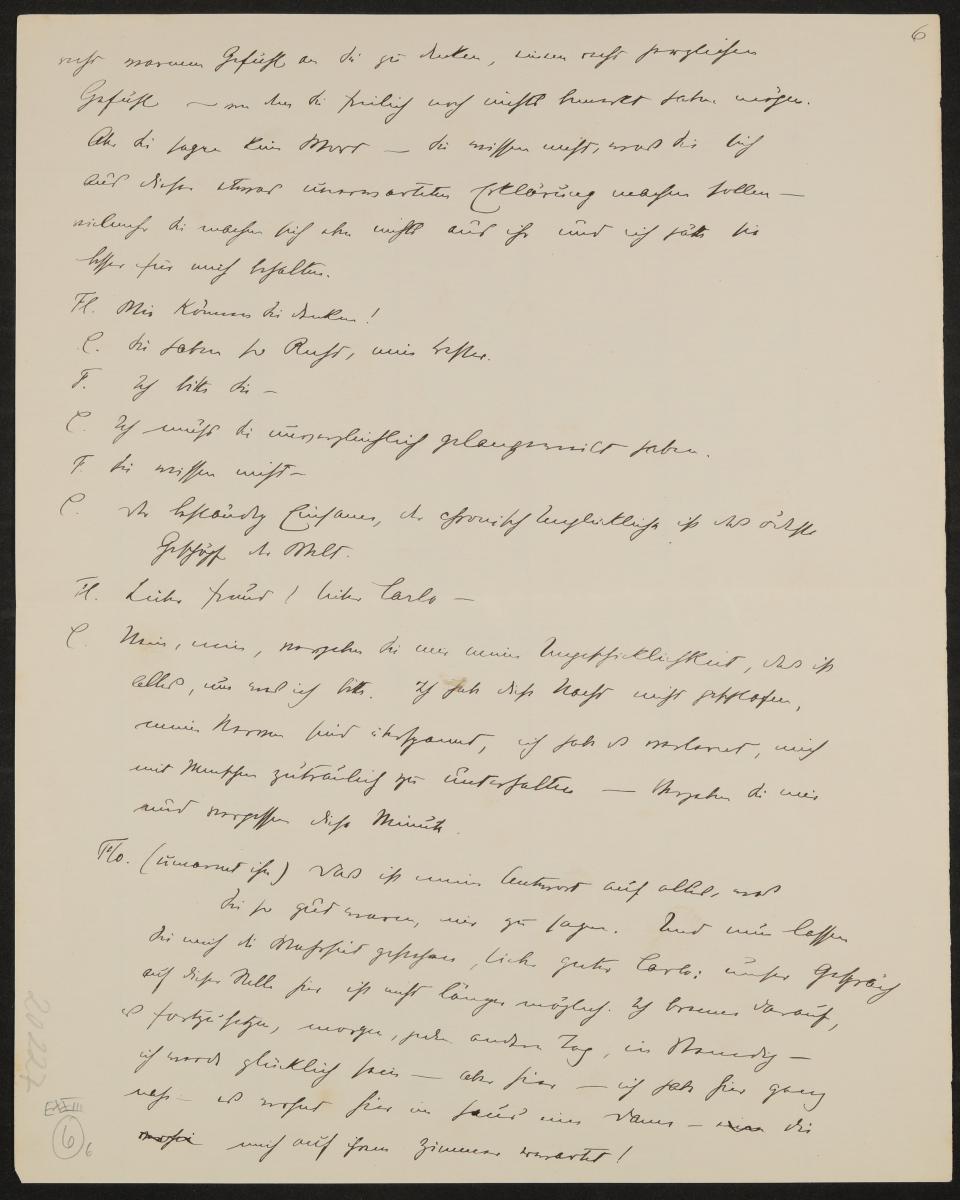 6
recht warmem Gefühl an Sie zu denken, einem recht herzlichen
Gefühl — von dem Sie freilich noch nichts bemerkt haben mögen.
Aber Sie sagen kein Wort — Sie wissen nicht, was Sie sich
aus dieser etwas unerwarteten Erklärung machen sollen —
vielmehr Sie machen sich eben nichts aus ihr und ich hätte sie
besser für mich behalten.
Fl. Wie können Sie denken!
C. Sie haben so Recht, mein Bester.
F. Ich bitte Sie —
C. Ich muß Sie unvergleichlich gelangweilt haben.
F. Sie wissen nicht —
C. Der beständig Einsame, der chronisch Unglückliche ist das ödeste
Geschöpf der Welt.
Fl. Lieber Freund! lieber Carlo —
C. Nein, nein, vergeben Sie mir meine Ungeschicklichkeit, das ist
alles, um was ich bitte. Ich habe diese Nacht nicht geschlafen,
meine Nerven sind überspannt, ich habe es verlernt, mich
mit Menschen zutraulich zu unterhalten — Vergeben Sie mir
und vergessen diese Minute.
Flo. (umarmt ihn) Das ist meine Antwort auf alles, was
Sie so gut waren, mir zu sagen. Und nun lassen
Sie mich die Wahrheit gestehen, lieber guter Carlo: unser Gespräch
auf dieser Stelle hier ist nicht länger möglich. Ich brenne darauf,
es fortzusetzen, morgen, jeden andern Tag, in Venedig —
ich werde glücklich sein — aber hier — ich habe hier ganz
nahe — es wohnt hier im Haus eine Dame — die
mich auf ihrem Zimmer erwartet!
20227
EXVIII
6
6